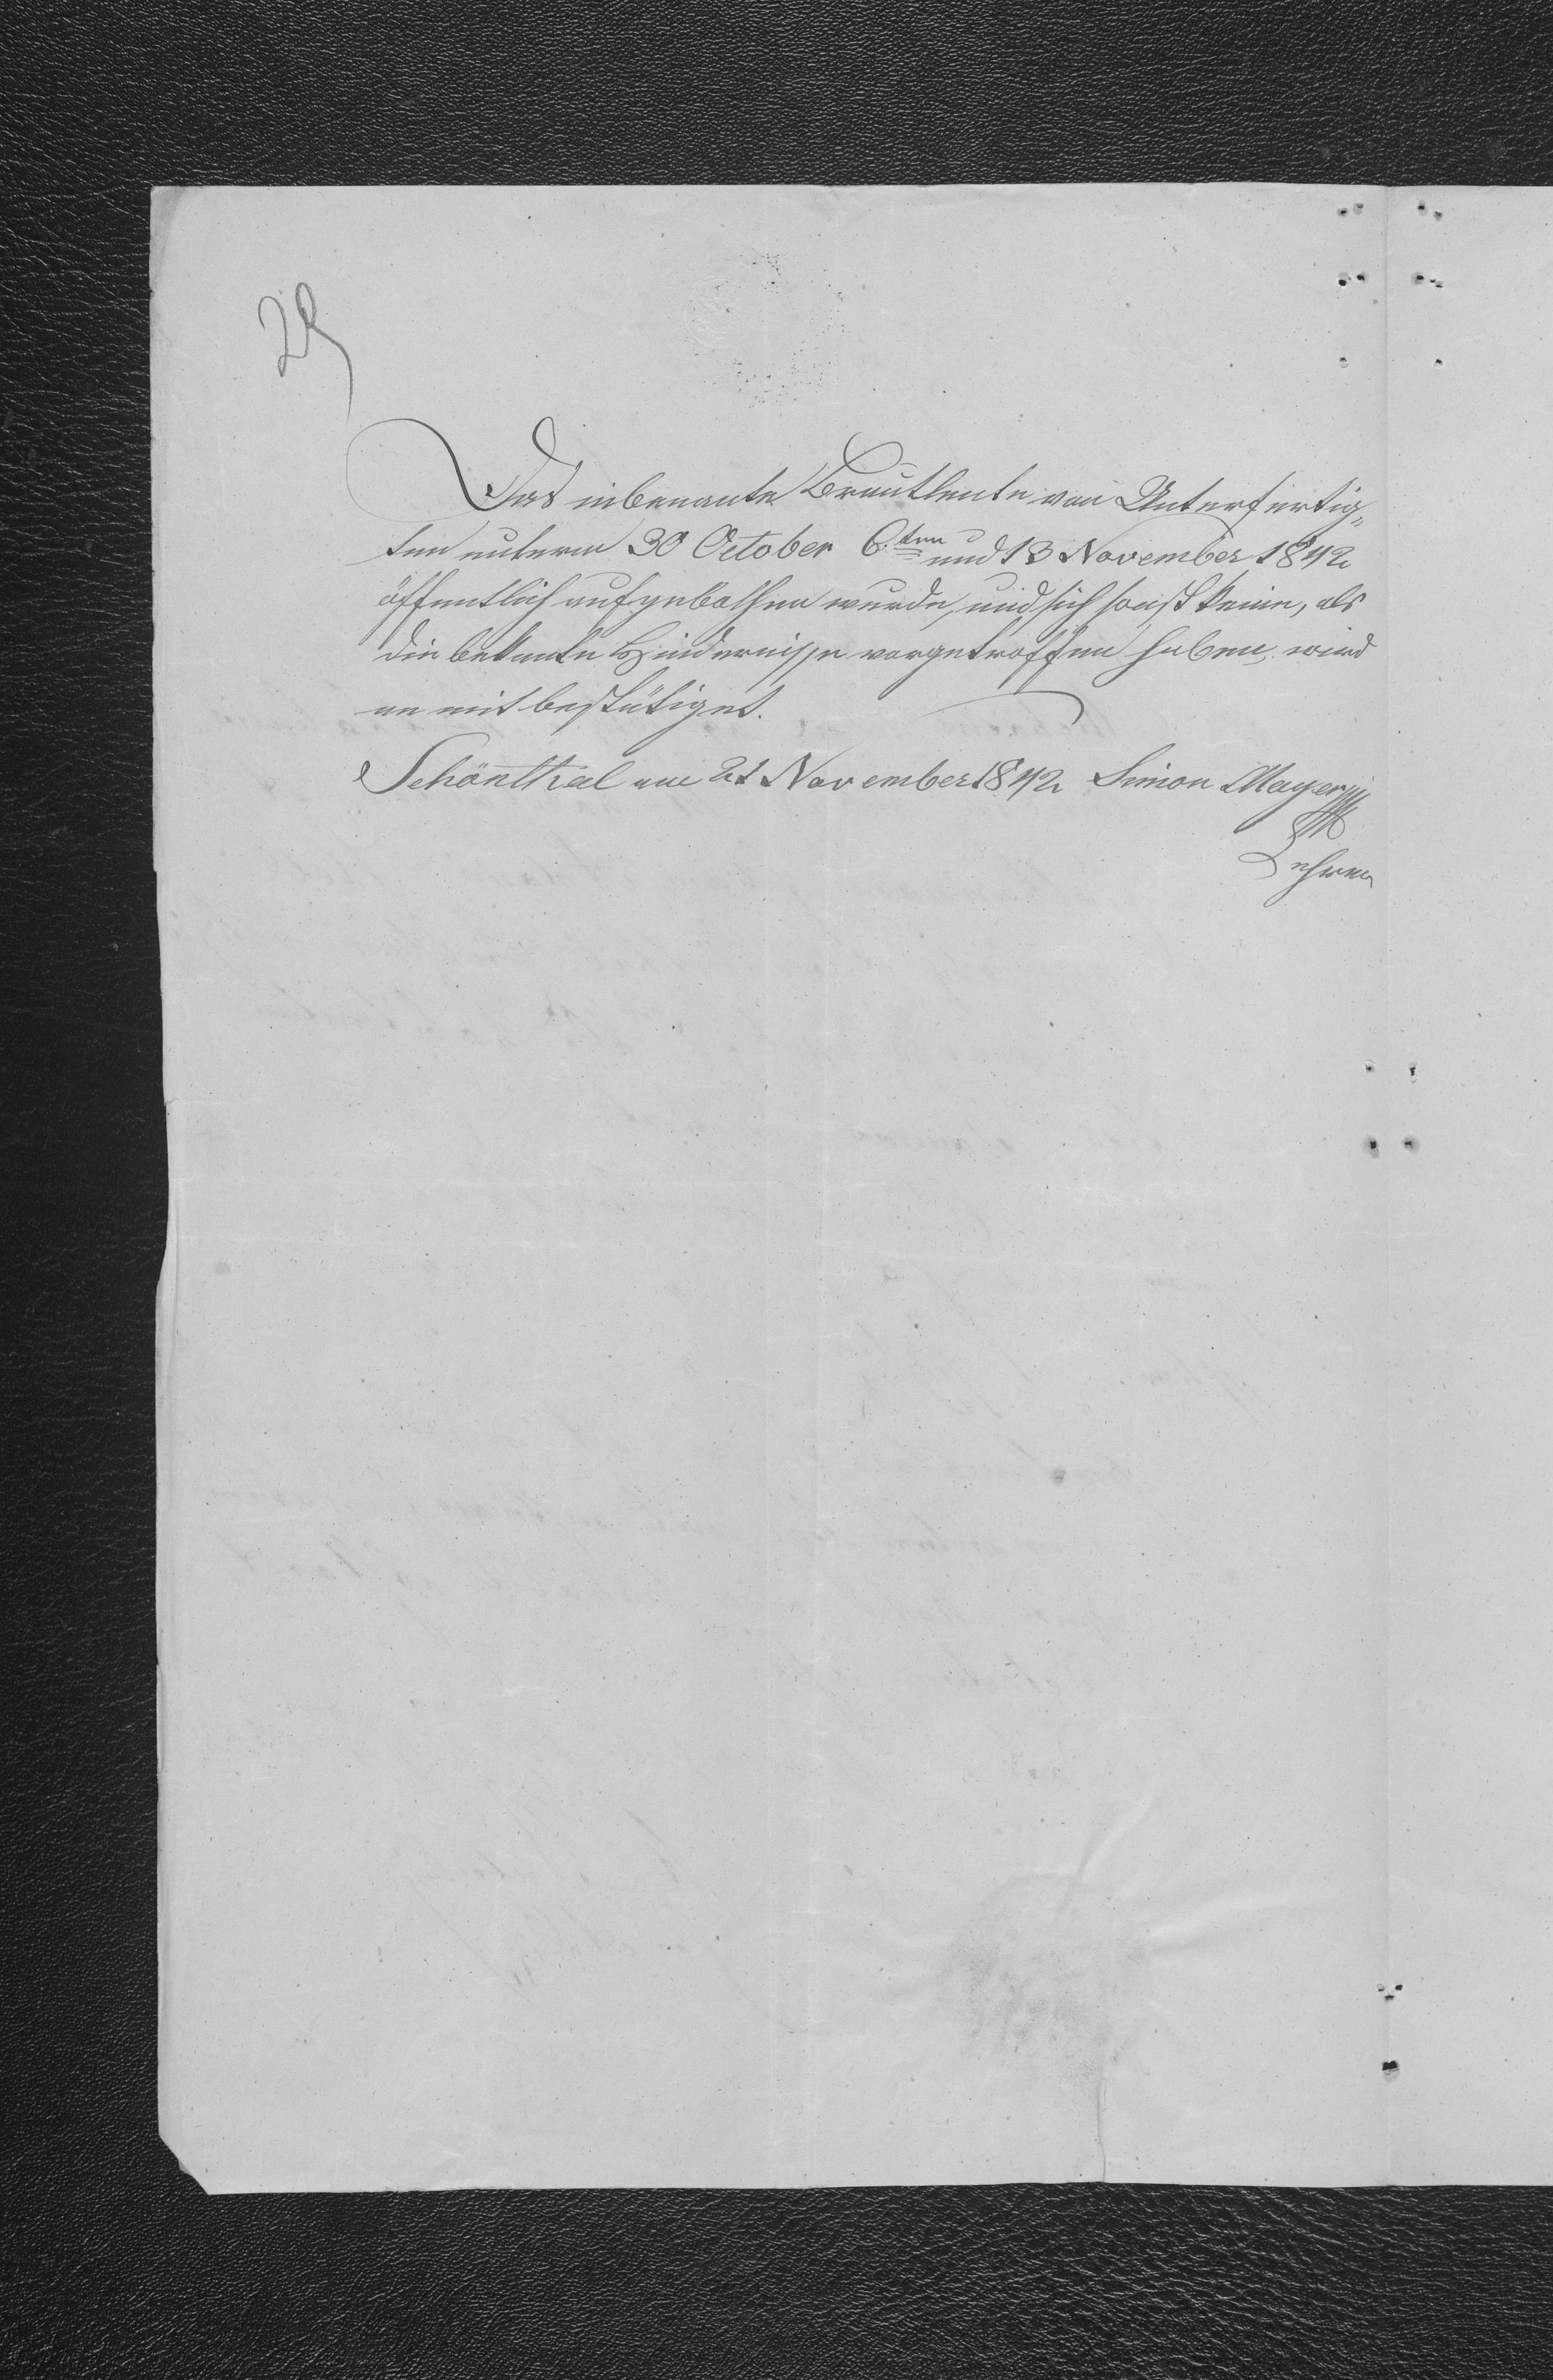 28
Das inbenante Brautleute von Unterfertig„
ten unterm 30 October 6ten und 13 November 1842
öffentlich aufgebothen wurde, und sich sonst keine, als
die bekante Hindernisse vorgetroffen haben, wird
an mit bestätiget.
Schönthal am 21 November 1842 Simon Mayer
Lehrer